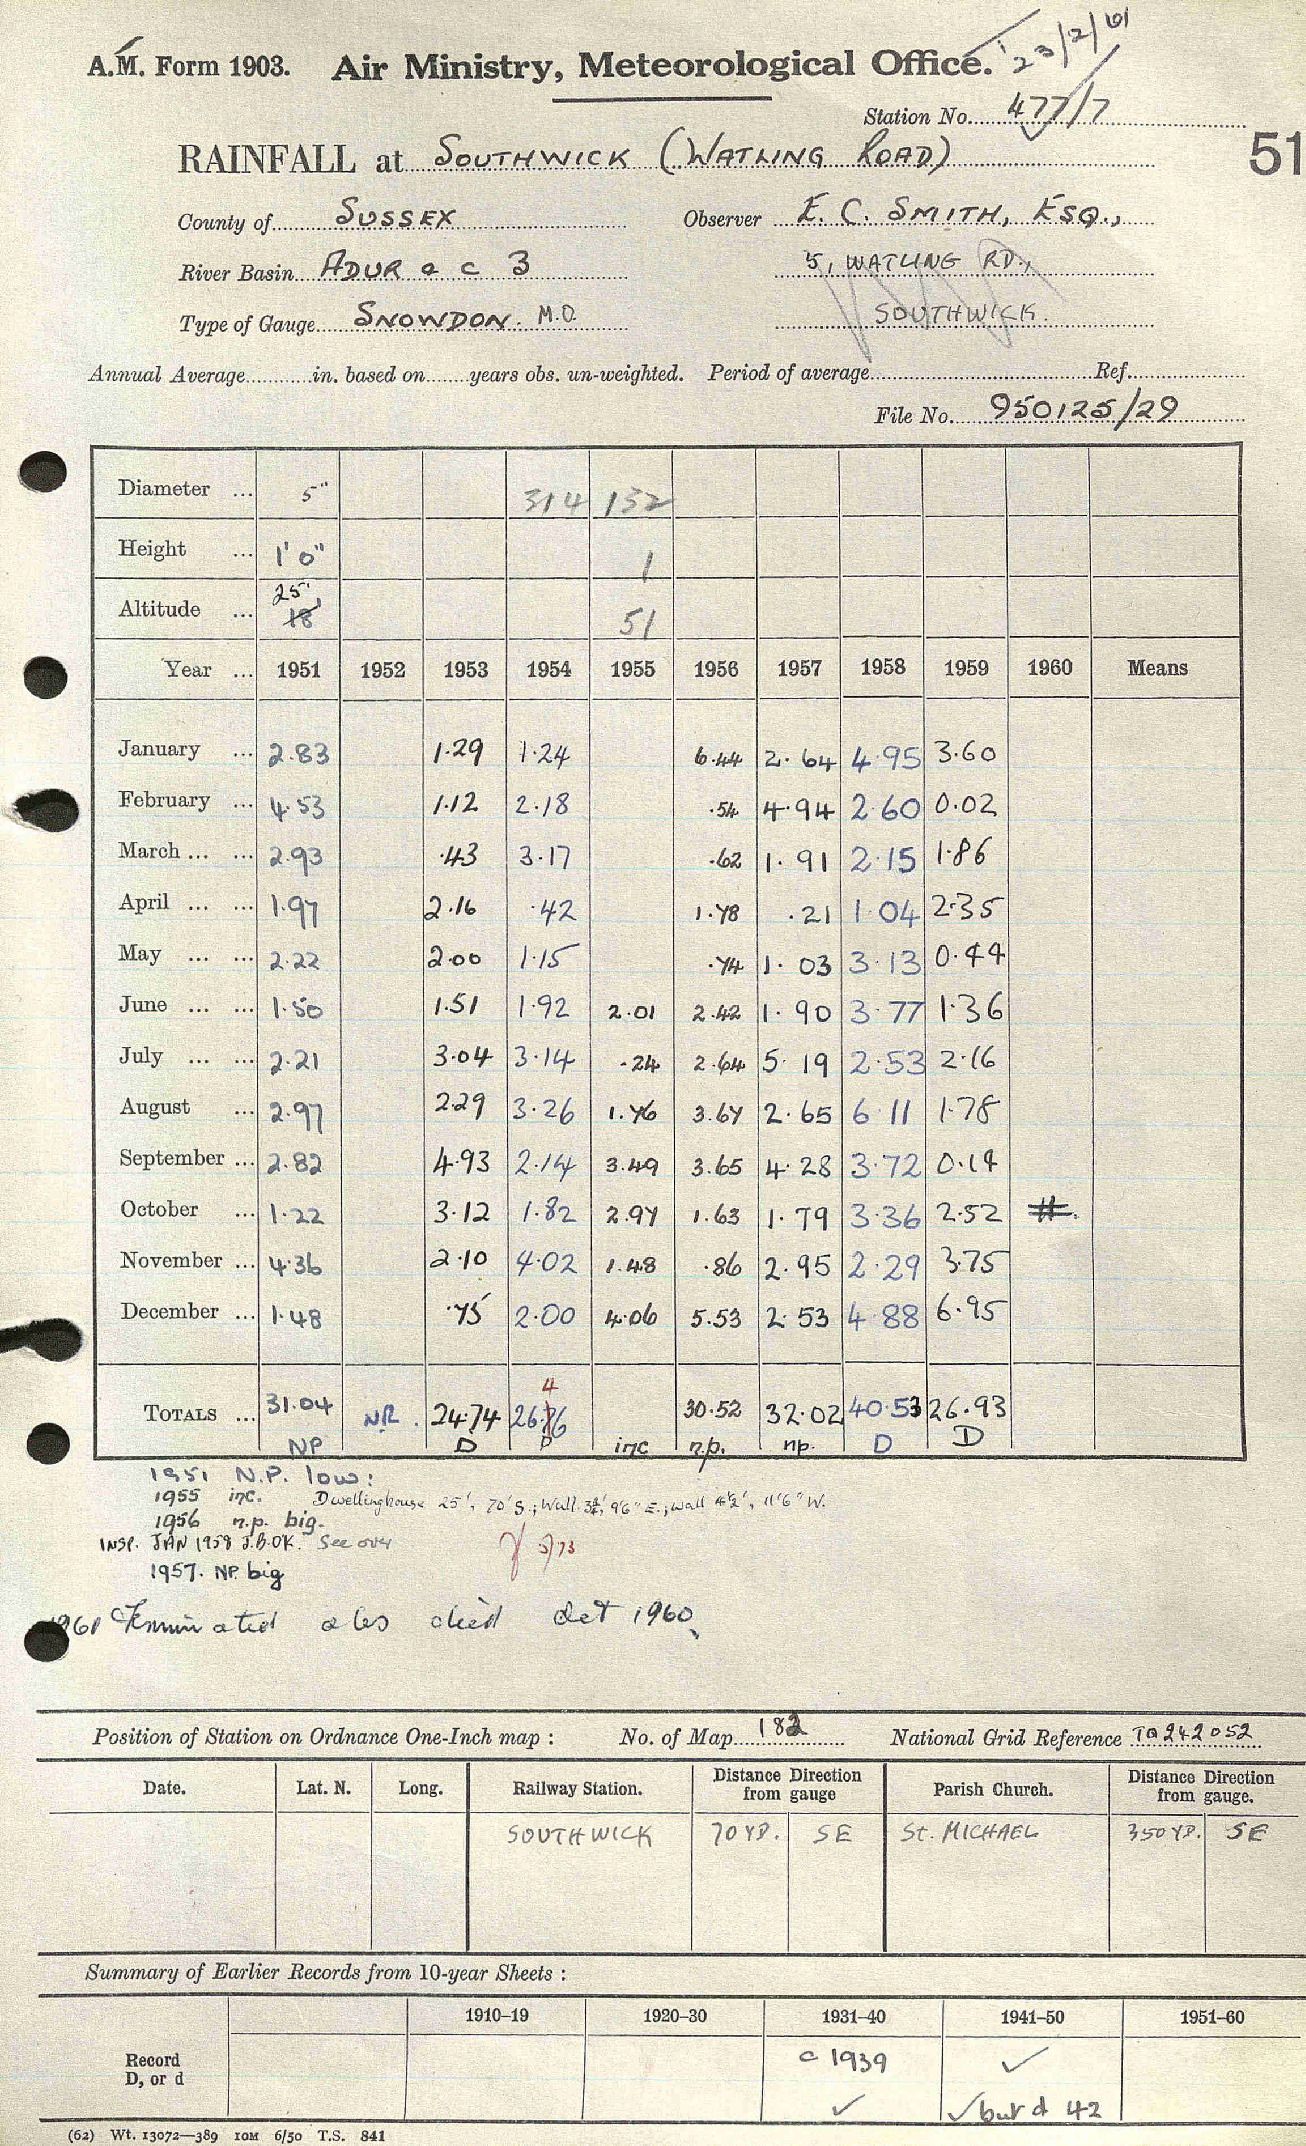 23/2/61
A.M. Form 1903. Air Ministry, Meteorological Office.
Station No. 477/7
51
RAINFALL at SOUTHWICK (WATLING ROAD)
County of SUSSEX Observer E. C. SMITH, ESQ.,
River Basin ADUR a c 3 5, WATLING RD.,
Type of Gauge SNOWDON. M.O. SOUTHWICK.
Annual Average in. based on years obs. un-weighted. Period of average Ref.
File No. 950125/29
Diameter ... 5" 314 152
Height ... 1' 0" 1
Altitude ... 25' 18' 51
Year ... 1951 1952 1953 1954 1955 1956 1957 1958 1959 1960 Means
January ... 2.83 1.29 1.24 6.44 2.64 4.95 3.60
February ... 4.53 1.12 2.18 .54 4.94 2.60 0.02
March ... ... 2.93 .43 3.17 .62 1.91 2.15 1.86
April ... ... 1.97 2.16 .42 1.78 .21 1.04 2.35
May ... ... 2.22 2.00 1.15 .74 1.03 3.13 0.44
June ... ... 1.50 1.51 1.92 2.01 2.42 1.90 3.77 1.36
July ... ... 2.21 3.04 3.14 .24 2.64 5.19 2.53 2.16
August ... 2.97 2.29 3.26 1.76 3.67 2.65 6.11 1.78
September ... 2.82 4.93 2.14 3.49 3.65 4.28 3.72 0.14
October ... 1.22 3.12 1.82 2.97 1.63 1.79 3.36 2.52 #.
November ... 4.36 2.10 4.02 1.48 .86 2.95 2.29 3.75
December ... 1.48 .75 2.00 4.06 5.53 2.53 4.88 6.95
4
TOTALS ... 31.04 NR. 24.74 26.76 30.52 32.02 40.53 26.93
NP D D inc n.p. np. D D
1951 N.P. low:
1955 inc. Dwellinghouse 25', 70' S.; Wall 3½', 9'6" E.; Wall 4½', 11'6" W.
1956 n.p. big.
INSP. JAN 1958 J.B. OK. See over 5/73
1957. NP. big
1960 Terminated obs died Oct 1960
Position of Station on Ordnance One-Inch map : No. of Map 182 National Grid Reference TQ 242052
Date. Lat. N. Long. Railway Station. Distance Direction from gauge Parish Church. Distance Direction from gauge.
SOUTHWICK 70 YD. SE St. MICHAEL 350 YD. SE
Summary of Earlier Records from 10-year Sheets :
1910–19 1920–30 1931–40 1941–50 1951–60
Record c 1939 ✓
D, or d ✓ ✓ but d 42
(62) Wt. 13072—389 10M 6/50 T.S. 841